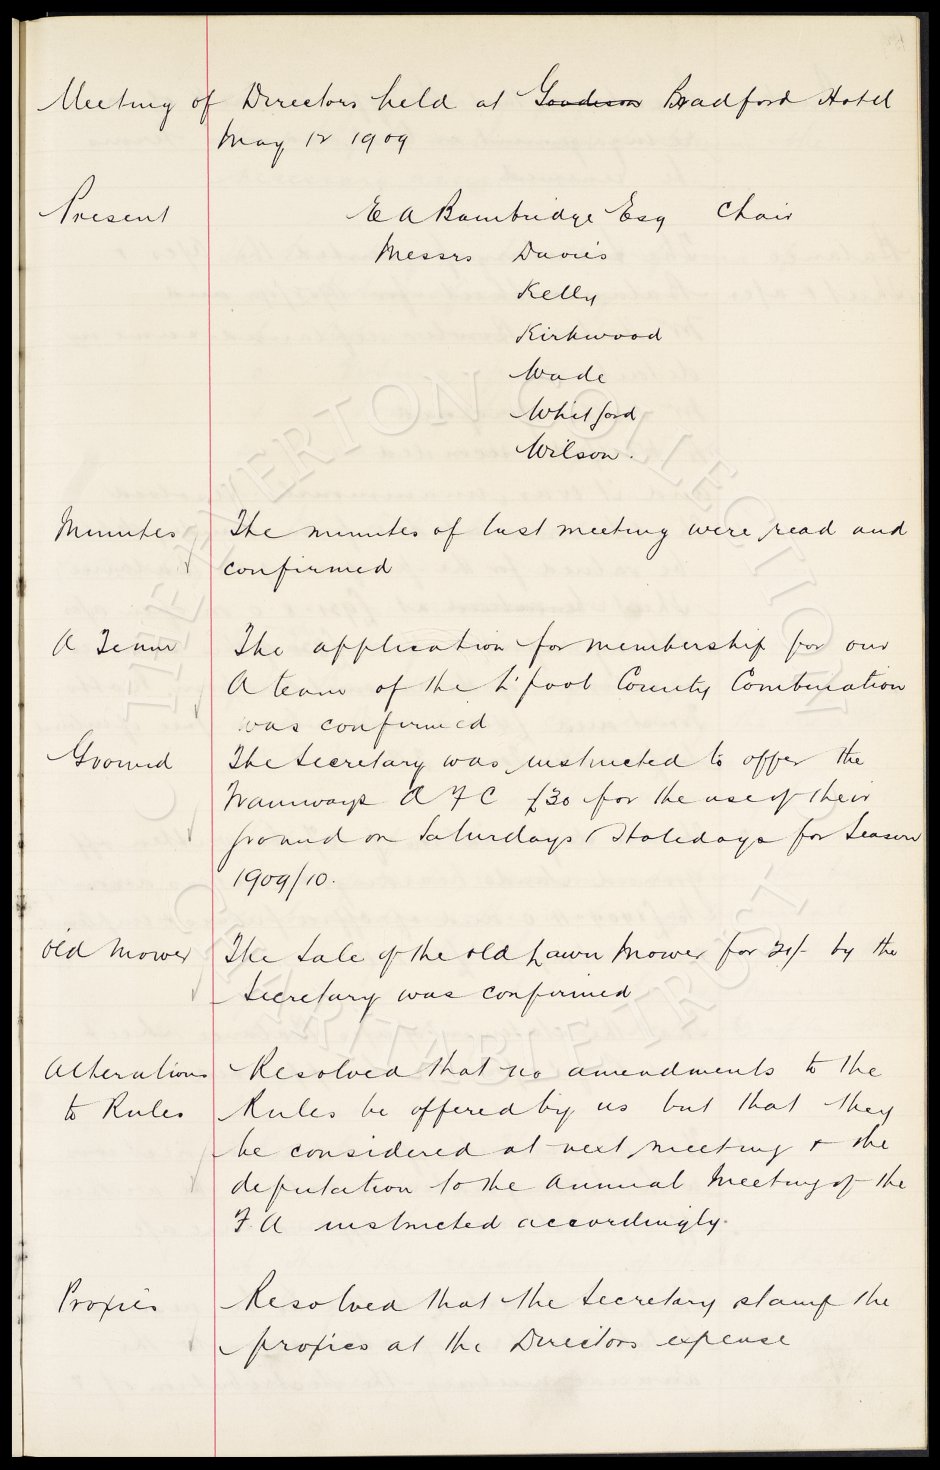 Meeting of Directors held at Goodison Bradford Hotel
May 12 1909
Present E A Bainbridge Esq Chair
Messrs Davies
Kelly
Kirkwood
Wade
Whitford
Wilson.
Minutes The minutes of last meeting were read and
confirmed
A Team The application for membership for our
A team of the L'pool County Combination
was confirmed
Ground The Secretary was instructed to offer the
Tramways A F C £30 for the use of their
ground on Saturdays & Holidays for Season
1909/10.
Old Mower The Sale of the old Lawn Mower for 20/- by the
Secretary was confirmed
Alterations Resolved that no amendments to the
to Rules Rules be offered by us but that they
be considered at next meeting & the
deputation to the Annual Meeting of the
F. A instructed accordingly.
Proxies Resolved that the Secretary stamp the
proxies at the Directors expense
THE EVERTON COLLECTION
CHARITABLE TRUST